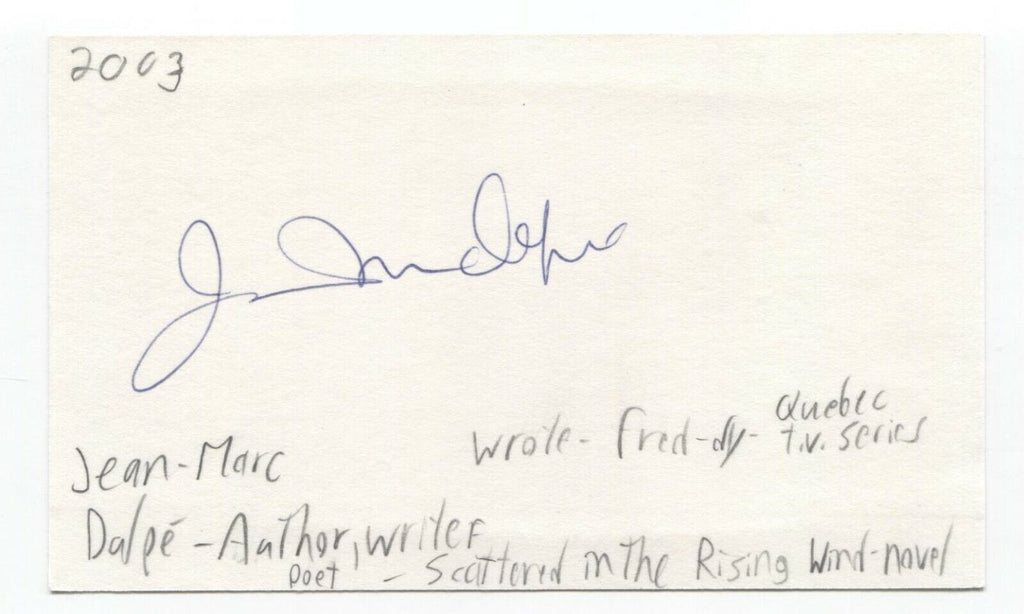 2003
Quebec
wrote - Fred-dy - t.v. series
Jean-Marc
Dalpé - Author, writer
poet - Scattered in the Rising Wind - novel